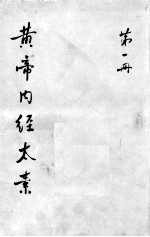 第一冊
黄帝内经太素